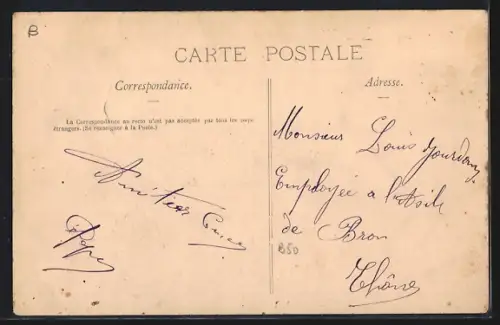 B
CARTE POSTALE
Correspondance.
Adresse.
La Correspondance au recto n'est pas acceptée par tous les pays
étrangers. (Se renseigner à la Poste.)
Monsieur Louis Jourdan
Employée a l'Asile
de Bron
Rhône
B50